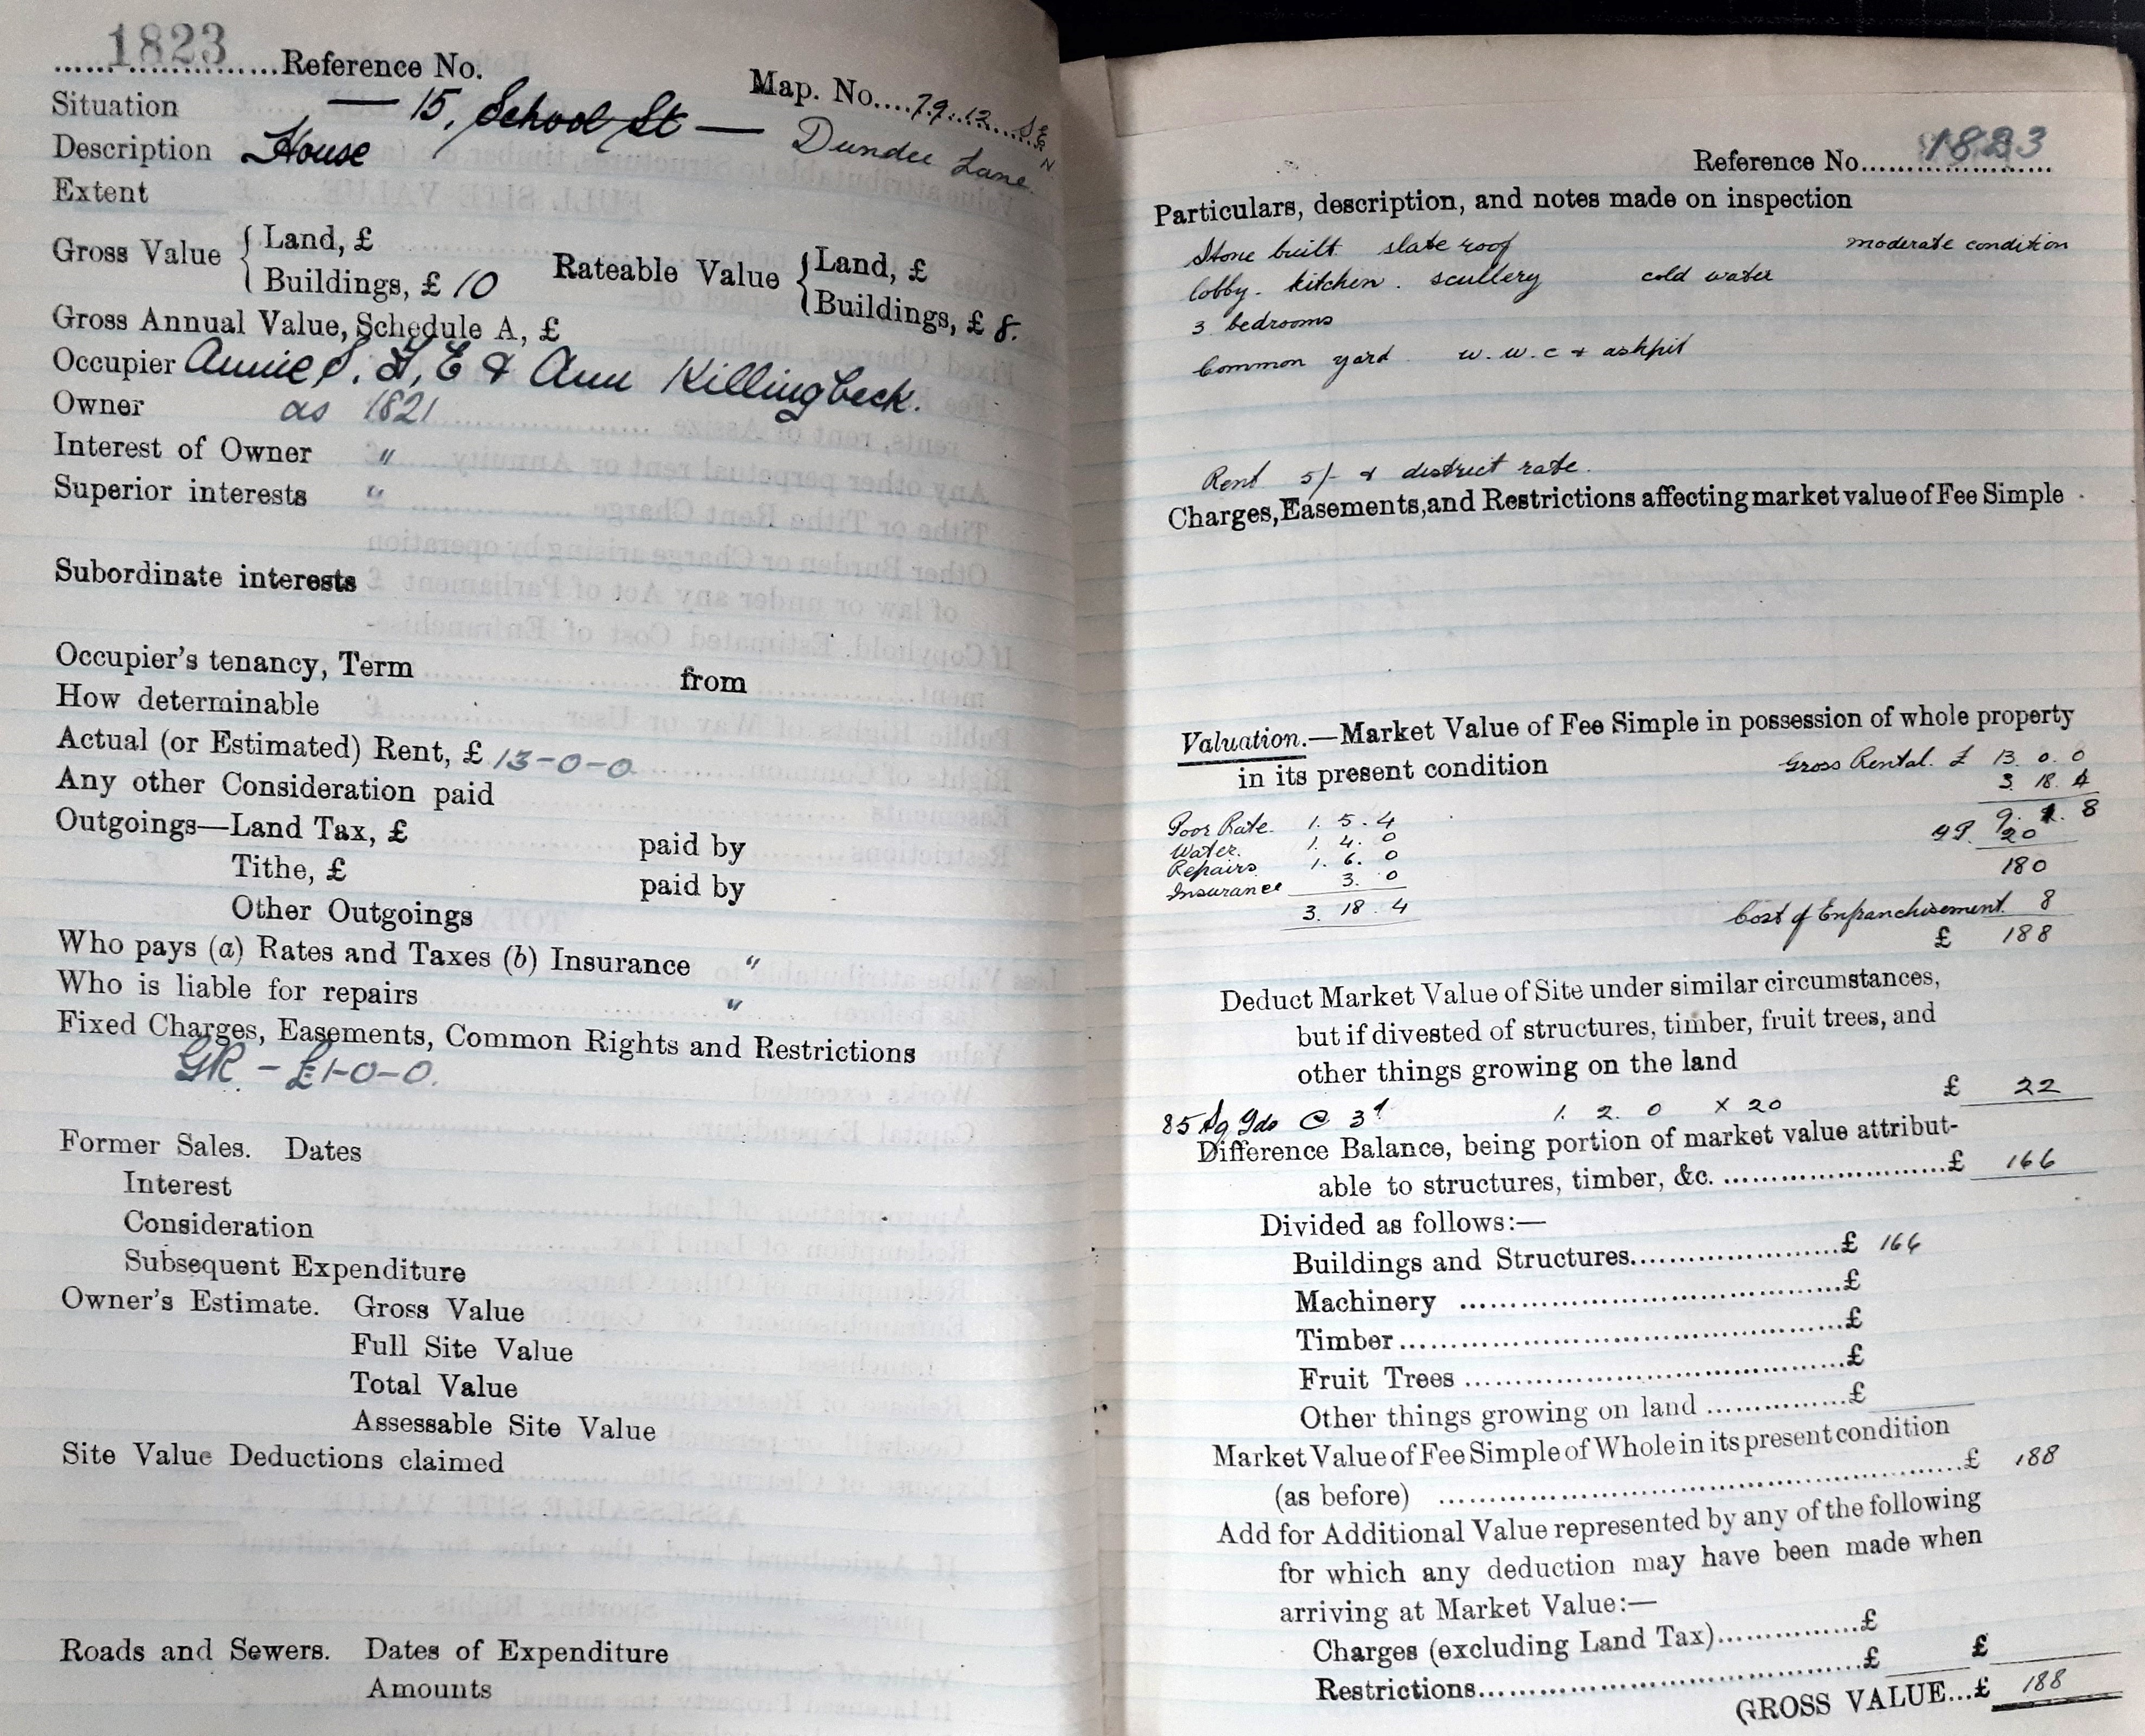 1823
Reference No.
Map. No. 79.12 S.E
N
Situation — 15, School St — Dundee Lane.
Description House
Extent
Gross Value { Land, £
Buildings, £ 10
Rateable Value { Land, £
Buildings, £ 8.
Gross Annual Value, Schedule A, £
Occupier Annie S. L, E & Ann Killingbeck.
Owner as 1821
Interest of Owner "
Superior interests "
Subordinate interests
Occupier's tenancy, Term from
How determinable
Actual (or Estimated) Rent, £ 13-0-0
Any other Consideration paid
Outgoings—Land Tax, £ paid by
Tithe, £ paid by
Other Outgoings
Who pays (a) Rates and Taxes (b) Insurance "
Who is liable for repairs "
Fixed Charges, Easements, Common Rights and Restrictions
GR - £1-0-0.
Former Sales. Dates
Interest
Consideration
Subsequent Expenditure
Owner's Estimate. Gross Value
Full Site Value
Total Value
Assessable Site Value
Site Value Deductions claimed
Roads and Sewers. Dates of Expenditure
Amounts
Reference No. 1823
Particulars, description, and notes made on inspection
Stone built slate roof moderate condition
lobby. kitchen. scullery cold water
3 bedrooms
Common yard w.w.c & ashpit
Rent 5/- & district rate.
Charges, Easements, and Restrictions affecting market value of Fee Simple
Valuation.—Market Value of Fee Simple in possession of whole property
in its present condition
Gross Rental. £ 13. 0. 0
3. 18. 4
9. 1. 8
Poor Rate. 1. 5. 4
Water. 1. 4. 0
Repairs 1. 6. 0
Insurance 3. 0
3. 18. 4
YP. 20
180
Cost of Enfranchisement 8
£ 188
Deduct Market Value of Site under similar circumstances,
but if divested of structures, timber, fruit trees, and
other things growing on the land
£ 22
85 Sq Yds @ 3d 1. 2. 0 x 20
Difference Balance, being portion of market value attribut-
able to structures, timber, &c. £ 166
Divided as follows:—
Buildings and Structures £ 166
Machinery £
Timber £
Fruit Trees £
Other things growing on land £
Market Value of Fee Simple of Whole in its present condition
(as before) £ 188
Add for Additional Value represented by any of the following
for which any deduction may have been made when
arriving at Market Value:—
Charges (excluding Land Tax) £
Restrictions £ £
GROSS VALUE...£ 188